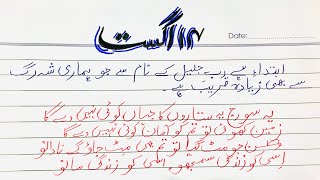 ۱۴ اگست
Date:
ابتداء ہے رب جلیل کے نام سے جو ہماری شہ رگ
سے بھی زیادہ قریب ہے
یہ سورج یہ ستاروں کا جہاں کوئی نہیں دے گا
زمین کھوئی تو تم کو آسماں کوئی نہیں دے گا
وطن جو مٹ گیا تو تم بھی مٹ جاؤ گے نادانو
اسی کو زندگی سمجھو اسی کو زندگی مانو